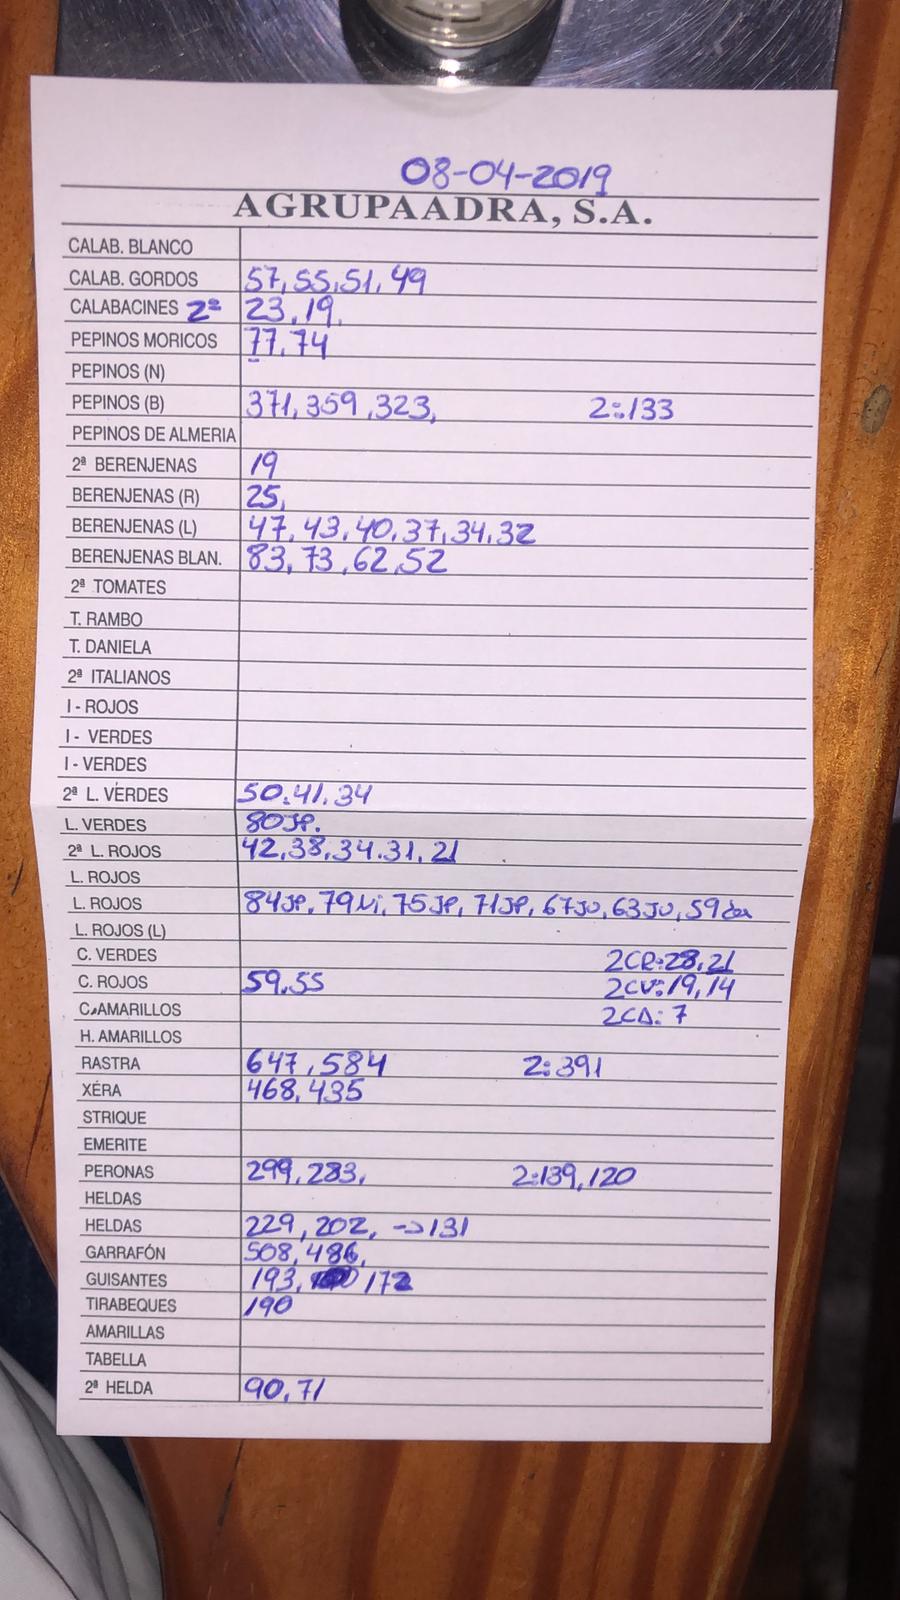 08-04-2019
AGRUPAADRA, S.A.
CALAB. BLANCO
CALAB. GORDOS 57, 55, 51, 49
CALABACINES 2ª 23, 19,
PEPINOS MORICOS 77, 74
PEPINOS (N)
PEPINOS (B) 371, 359, 323, 2:133
PEPINOS DE ALMERIA
2ª BERENJENAS 19
BERENJENAS (R) 25,
BERENJENAS (L) 47, 43, 40, 37, 34, 32
BERENJENAS BLAN. 83, 73, 62, 52
2ª TOMATES
T. RAMBO
T. DANIELA
2ª ITALIANOS
I - ROJOS
I - VERDES
I - VERDES
2ª L. VERDES 50. 41. 34
L. VERDES 80JP.
2ª L. ROJOS 42, 38, 34. 31, 21
L. ROJOS
L. ROJOS 84JP, 79Li, 75JP, 71JP, 67JU, 63JU, 59
L. ROJOS (L)
C. VERDES 2CR:28, 21
C. ROJOS 59. 55 2CV:19, 14
C. AMARILLOS 2CA: 7
H. AMARILLOS
RASTRA 647, 584 2:391
XÉRA 468, 435
STRIQUE
EMERITE
PERONAS 299, 283, 2:139, 120
HELDAS
HELDAS 229, 202, ->131
GARRAFÓN 508, 486,
GUISANTES 193, 172
TIRABEQUES 190
AMARILLAS
TABELLA
2ª HELDA 90, 71